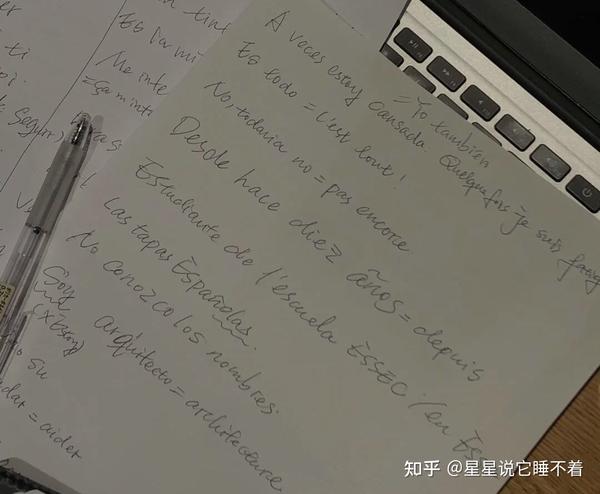 Es la mi
Me inte
Seguir)
A veces estoy cansada Quelquefois je suis
=Yo tambien
Es todo = C'est tout!
No, todavia no = pas encore
Desde hace diez años = depuis
Estudiante de l'escuela ESSEC. (en
Las tapas Españolas.
No conozco los nombres.
Soy arquitecto = architecture
(xestoy)
su
dar = aider
知乎 @星星说它睡不着